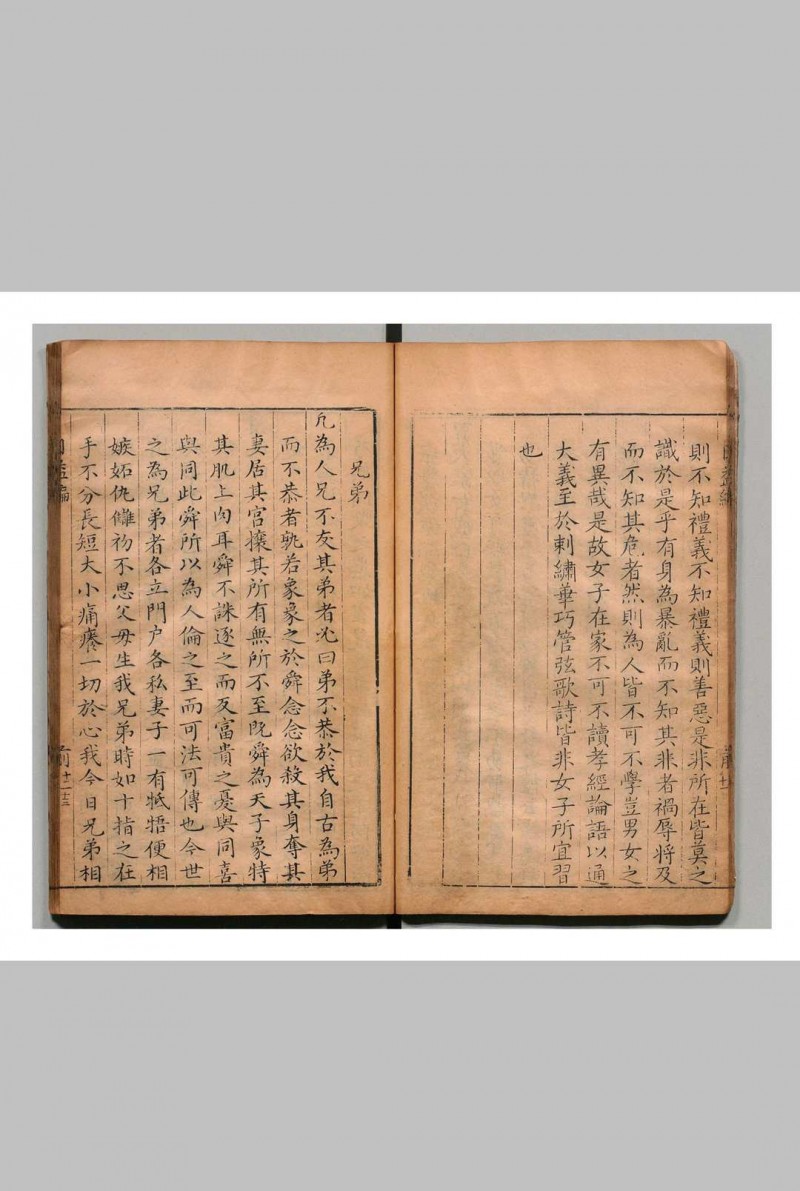 則不知禮義不知禮義則善惡是非所在皆莫之
識於是乎有身為暴亂而不知其非者禍辱將及
而不知其危者然則為人皆不可不學豈男女之
有異哉是故女子在家不可不讀孝經論語以通
大義至於刺繡華巧管弦歌詩皆非女子所宜習
也
兄弟
凡為人兄不友其弟者必曰弟不恭於我自古為弟
而不恭者孰若象象之於舜念念欲殺其身奪其
妻居其宮攘其所有無所不至既舜為天子象特
其肌上肉耳舜不誅逐之而反富貴之憂與同喜
與同此舜所以為人倫之至而可法可傳也今世
之為兄弟者各立門户各私妻子一有牴牾便相
嫉妬仇讎初不思父母生我兄弟時如十指之在
手不分長短大小痛癢一切於心我今日兄弟相
日益編